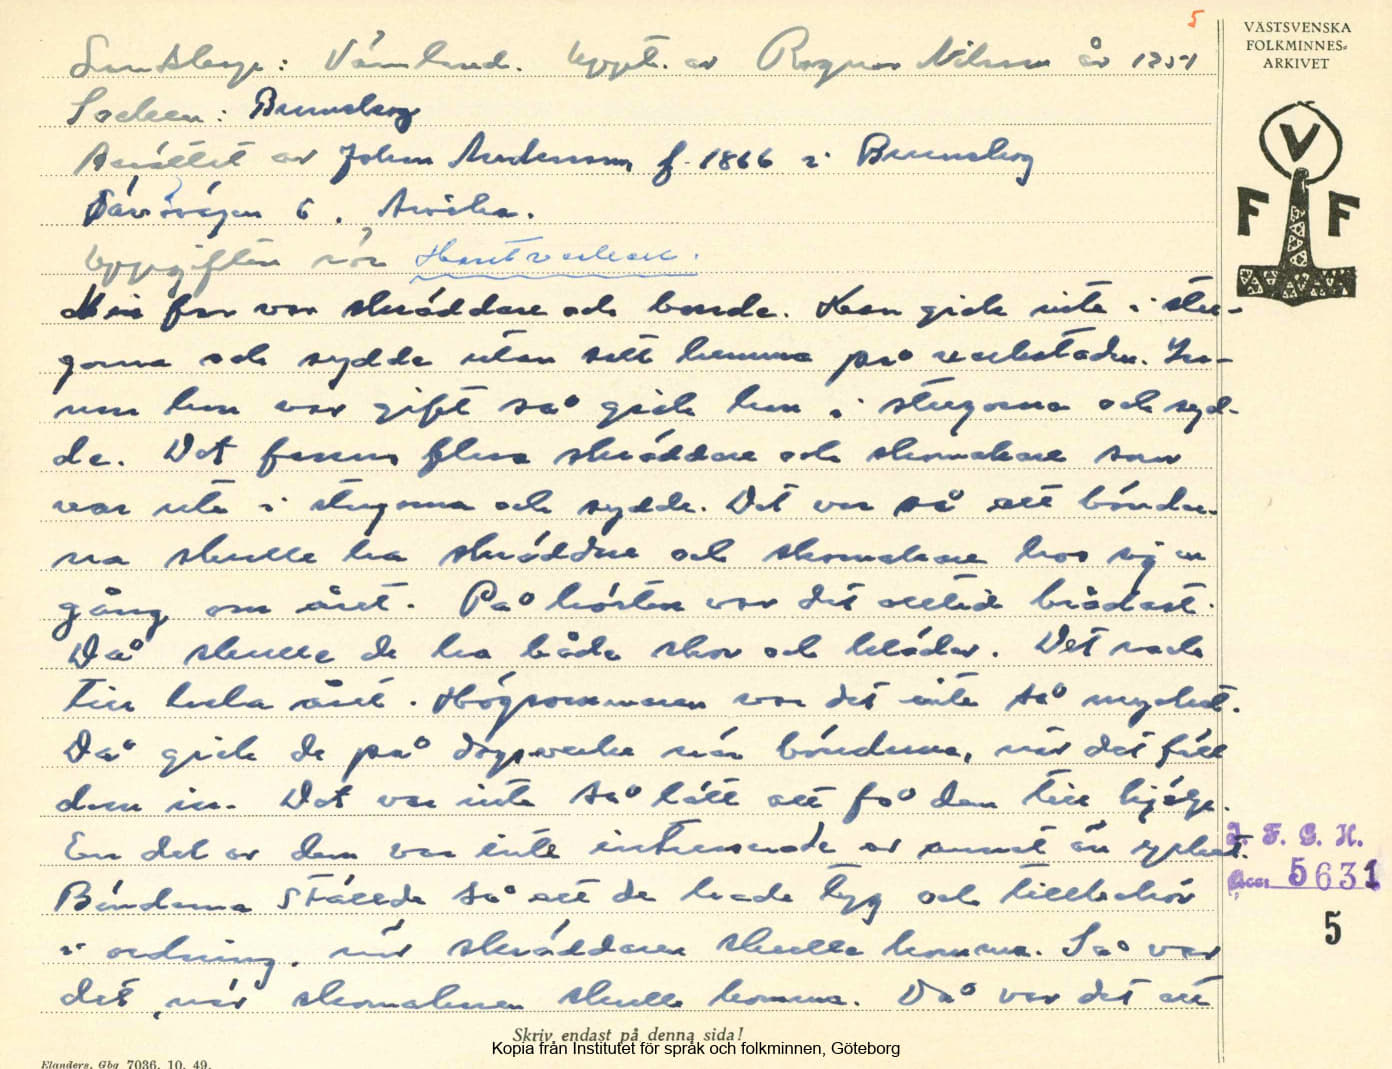 5
VÄSTSVENSKA
FOLKMINNES-
ARKIVET
Landskap: Värmland. Uppt. av Ragnar Nilsson år 1951
Socken: Brunskog
Berättat av Johan Andersson, f. 1866 i Brunskog
6, Arvika.
Uppgiften rör Hantverkare.
V
F F
Min far var skräddare och bonde. Han gick inte i stu-
gorna och sydde utan satt hemma på verkstaden. In-
nan han var gift så gick han i stugorna och syd-
de. Det fanns flera skräddare och skomakare som
var ute i stugorna och sydde. Det var så att bönder-
na skulle ha skräddare och skomakare hos sig en
gång om året. På hösten var det alltid brådast.
Då skulle de ha både skor och kläder. Det räck
till hela året. Högsommaren var det inte så mycket.
Då gick de på dagsverke när bönderna, när det föll
dem in. Det var inte så lätt att få dem till hjälp.
En del av dem var inte intresserade av annat än yrket.
Bönderna ställde så att de hade tyg och tillbehör
i ordning, när skräddaren skulle komma. Så var
det, när skomakaren skulle komma. Då var det att
I. F. G. H.
Acc. 5631
5
Skriv endast på denna sida!
Kopia från Institutet för språk och folkminnen, Göteborg
Elanders, Gbg 7036. 10. 49.